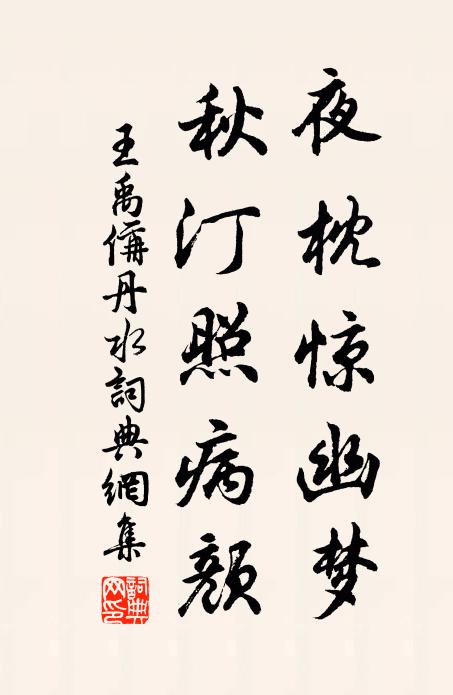 夜枕惊幽梦
秋汀照病颜
王禹偁丹水詞典網集
詞典
网印